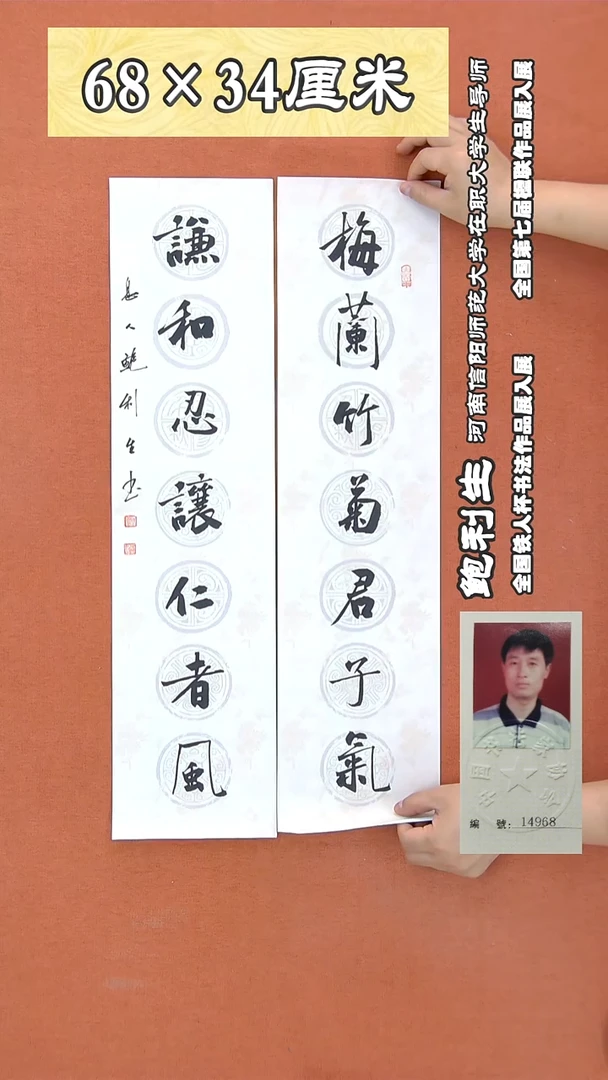 68×34厘米
梅蘭竹菊君子氣
謙和忍讓仁者風
鲍利生书
鲍利生 河南信阳师范大学在职大学生导师
全国铁人杯书法作品展入展 全国第七届楹联作品展入展
編 號: 14968